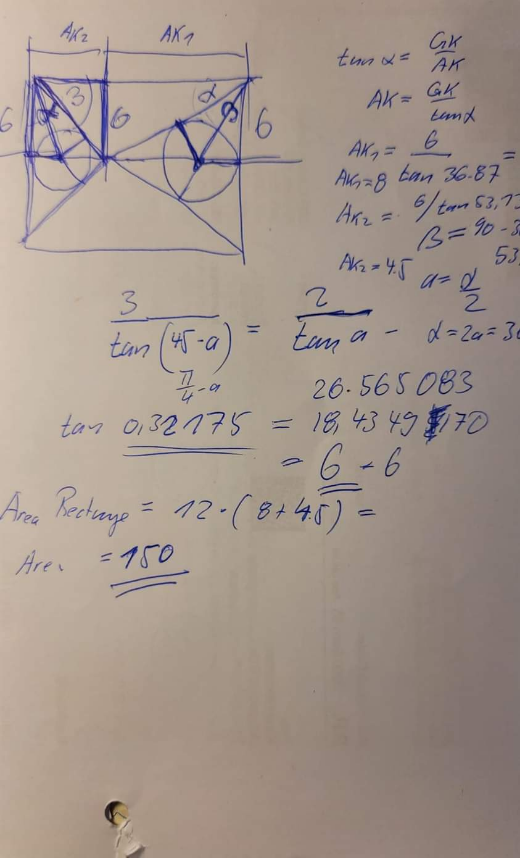 AK₂ AK₁
6 α 3 6 α β 6
tan α = GK/AK
AK = GK/tan α
AK₁ = 6/tan 36.87 =
AK₁=8
AK₂ = 6/tan 53,13
β = 90 - 3
53,
AK₂ = 4.5 a = α/2
3/tan(45-a) = 2/tan a - α = 2a = 36
π/4 - a
26.565083
tan 0,32175 = 18,4349 170
= 6 - 6
Area Rectange = 12 · (8 + 4.5) =
Area = 150